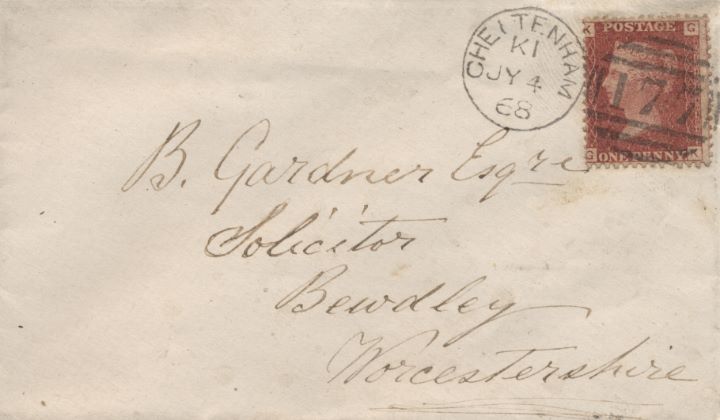 CHELTENHAM
K1
JY 4
68
K POSTAGE G
177
G ONE PENNY K
B. Gardner Esqre
Solicitor
Bewdley
Worcestershire